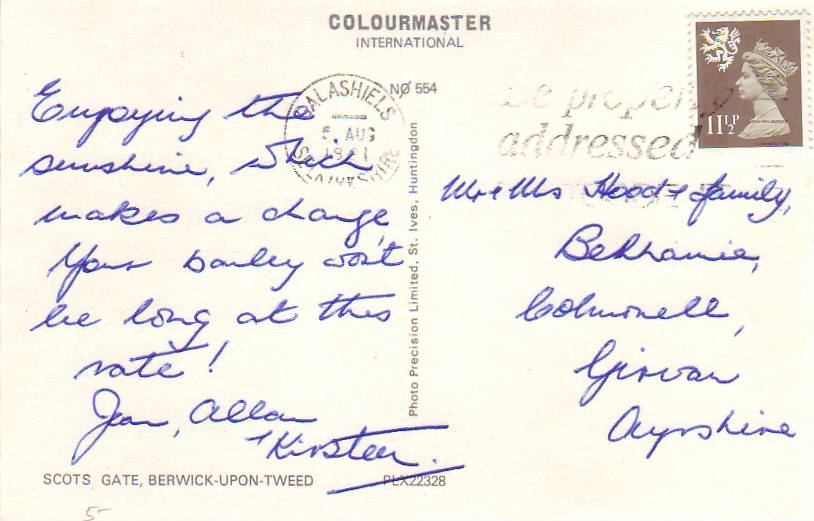 COLOURMASTER
INTERNATIONAL
NO 554
GALASHIELS
5 AUG
1981
SELKIRKSHIRE
be properly
addressed
11½P
Enjoying the
sunshine, which
makes a change,
Your barley won't
be long at this
rate!
Jean, Allan
+ Kirsteen.
Mr & Mrs Hood & family,
Colmonell,
Girvan
Ayrshire
Photo Precision Limited, St. Ives, Huntingdon
SCOTS GATE, BERWICK-UPON-TWEED
PLX22328
5